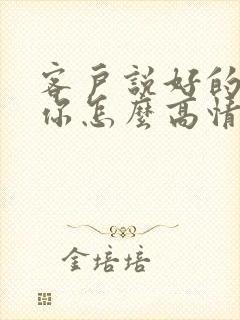 客戶說好的
你怎麼高情
金培培